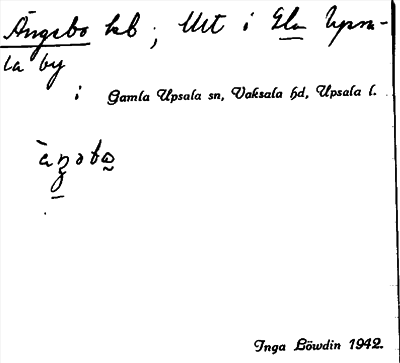 Ängsbo hb; Utt i Gla Upsa-
la by
i Gamla Upsala sn, Vaksala hd, Upsala l.
Inga Löwdin 1942.